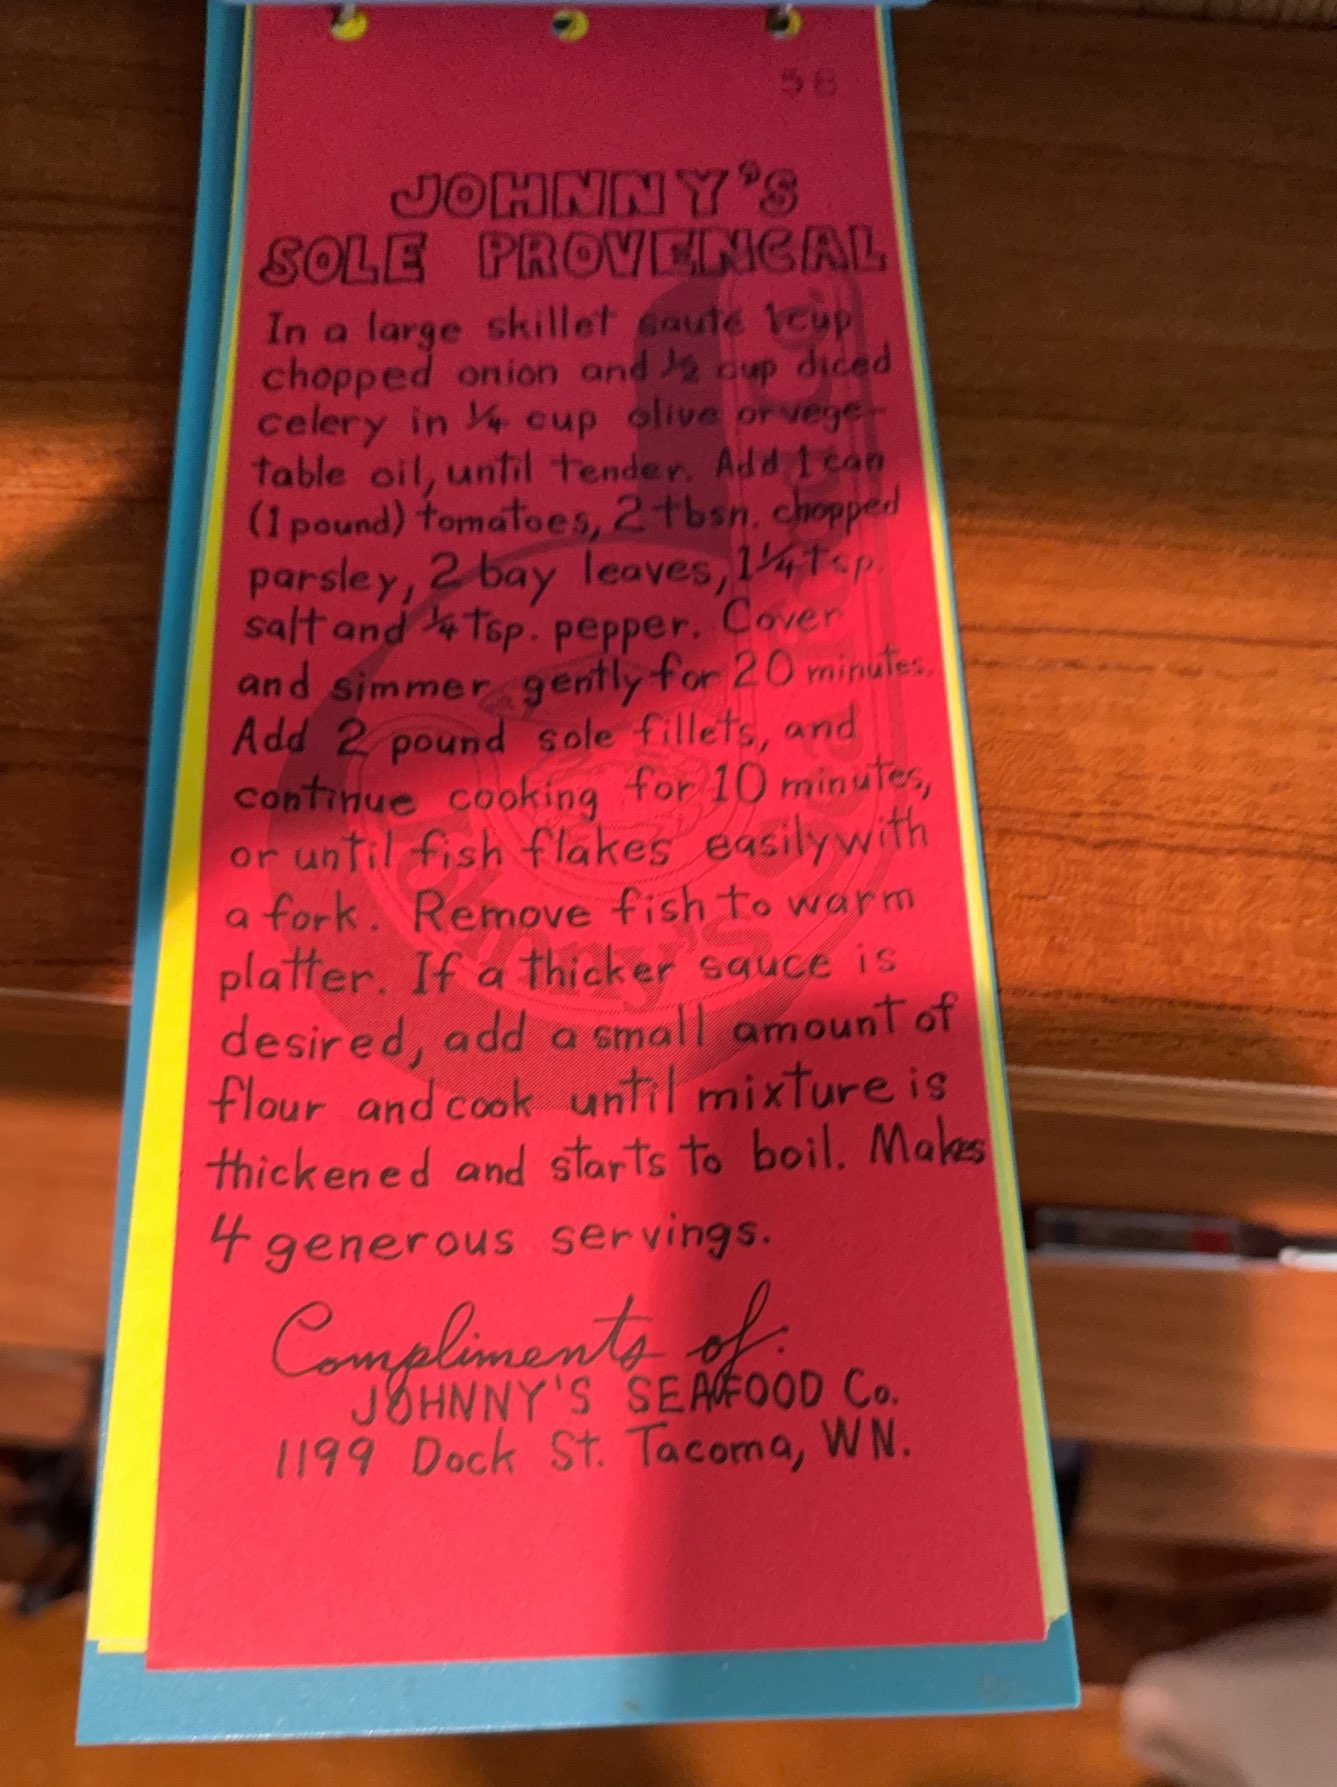 58
JOHNNY'S
SOLE PROVENCAL
In a large skillet saute 1 cup
chopped onion and ½ cup diced
celery in ¼ cup olive or vege-
table oil, until tender. Add 1 can
(1 pound) tomatoes, 2 tbsn. chopped
parsley, 2 bay leaves, 1¼ tsp.
salt and ¼ tsp. pepper. Cover
and simmer gently for 20 minutes.
Add 2 pound sole fillets, and
continue cooking for 10 minutes,
or until fish flakes easily with
a fork. Remove fish to warm
platter. If a thicker sauce is
desired, add a small amount of
flour and cook until mixture is
thickened and starts to boil. Makes
4 generous servings.
Compliments of:
JOHNNY'S SEAFOOD Co.
1199 Dock St. Tacoma, WN.
Johnny's